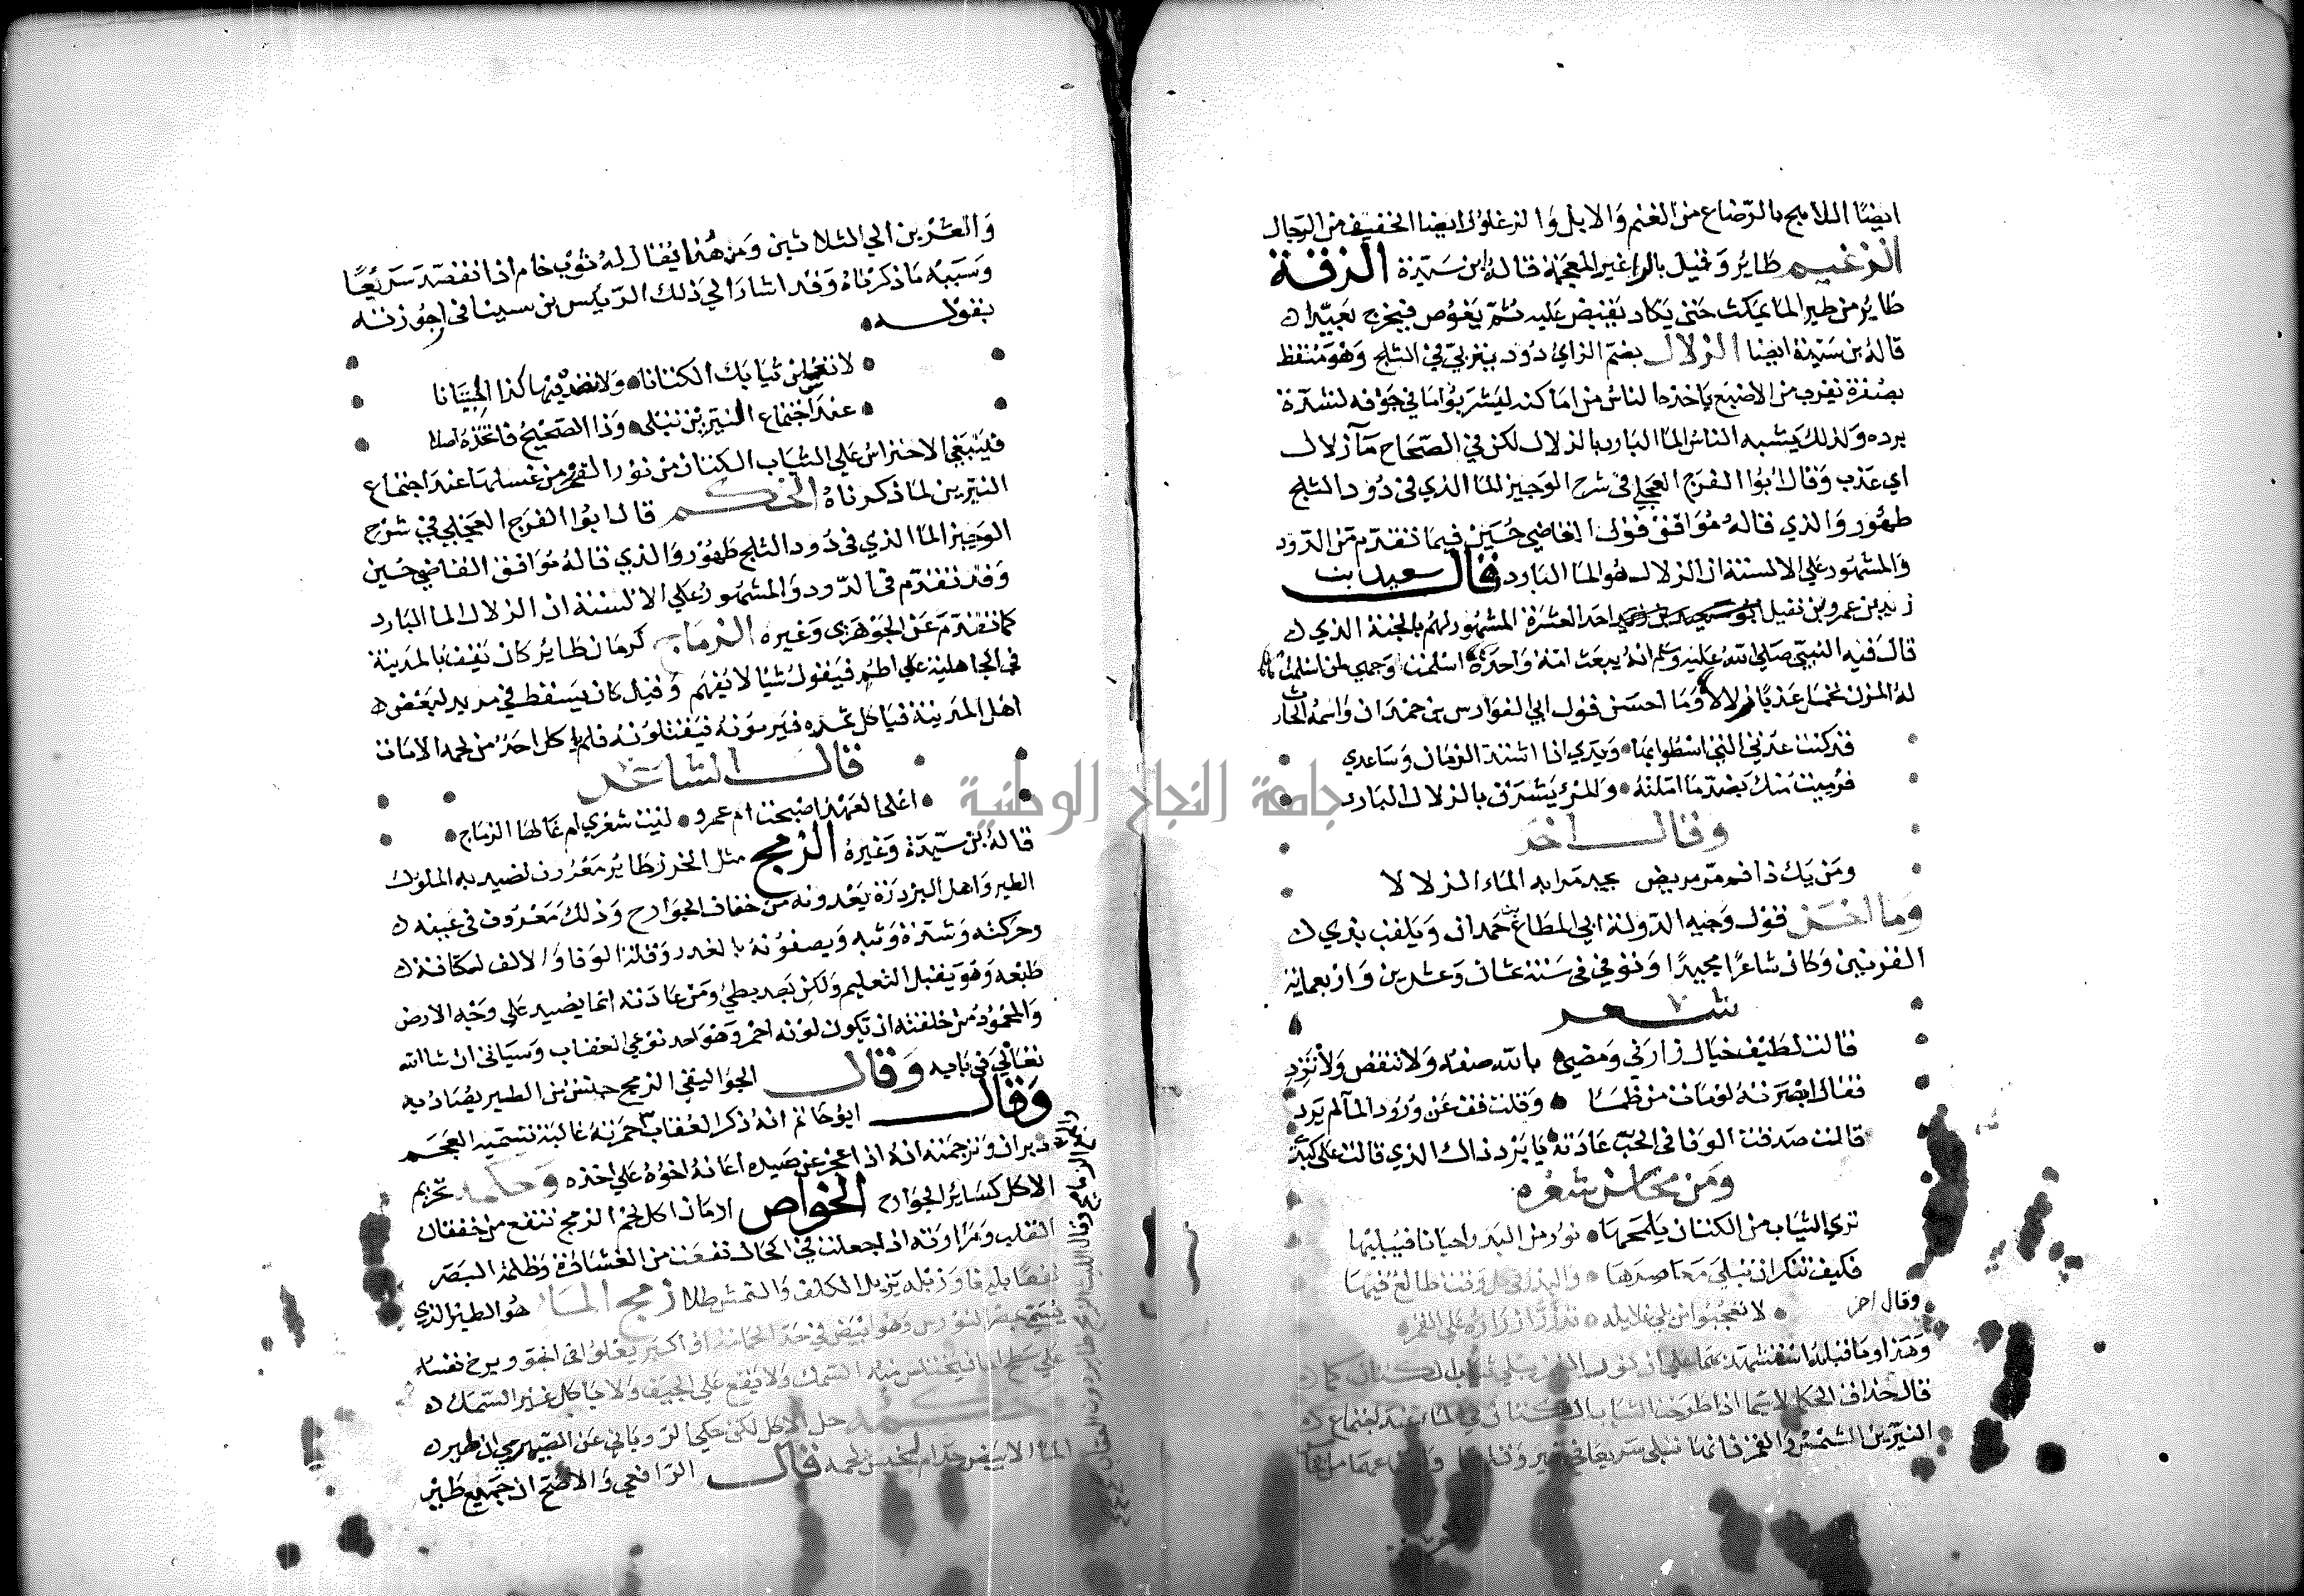 ايضا اللامج بالرضاع من الغنم والابل والزغلول ايضا الخفيف من الرجال
الزغيم طاير وقيل بالرا غير المعجمة قاله ابن سيدة الزقة
طاير من طير الما يمكث حتى يكاد يقبض عليه ثم يغوص فيخرج بعيدا
قاله بن سيدة ايضا الزلال بضم الزاي دود يتربي في الثلج وهو منقط
بصفرة يقرب من الاصبع ياخذه الناس من اماكنه ليشربوا ما في جوفه لشدة
برده ولذلك يشبه الناس الما البارد بالزلال لكن في الصحاح ما زلال
اي عذب وقال ابوا الفرج العجلي في شرح الوجيز الما الذي في دود الثلج
طهور والذي قاله موافق قول القاضي حسين فيما تقدم من الدود
والمشهور علي الالسنة ان الزلال هو الما البارد قال سعيد بن
زيد بن عمرو بن نفيل احد العشرة المشهود لهم بالجنة الذي
قال فيه النبي صلي الله عليه وسلم انه يبعث امة واحدة اسلمت وجهي لمن اسلمت
له المزن تحمل عذبا زلالا وما احسن قول ابي الفوارس بن حمدان واسمه الحارث
قد كنت عدتي التي اسطوا بها ويدي اذا اشتد الزمان وساعدي
فرميت منك بضد ما املته والمرء يشرق بالزلال البارد
وقال اخر
ومن يك ذا فم مر مريض يجد مرا به الماء الزلالا
وما احسن قول وجيه الدولة ابي المطاع بن حمدان ويلقب بذي
القرنين وكان شاعرا مجيدا وتوفي في سنة ثمان وعشرين واربعماية
شعر
قالت لطيف خيال زارني ومضي بالله صفه ولا تنقص ولا تزد
فقال ابصرته لو مات من ظما وقلت قف عن ورود الما لم يرد
قالت صدقت الوفا في الحب عادته يا برد ذاك الذي قالت علي كبدي
ومن محاسن شعره
تري الثياب من الكتان يلمحها نور من البدر احيانا فيبليها
فكيف تنكر ان تبلي معاجرها والبدر في كل وقت طالع فيها
وقال اخر لا تعجبوا من بلي غلايله قد زر ازراره علي القمر
وهذا وما قبله استشهد بهما علي ان نور القمر يبلي ثياب الكتان كما
قال حذاق الحكما لا سيما اذا طرحت الثياب الكتان في الما عند اجتماع
النيرين الشمس والقمر فانها تبلي سريعا في
والعشرين الي الثلاثين ومن هنا يقال له ثوب خام اذا انفصد سريعا
وسببه ما ذكرناه وقد اشار الي ذلك الرييس بن سينا في اجوزته
بقوله
لا تغسلن ثيابك الكتانا ولا تصد فيها كذا الحيتانا
عند اجتماع النيرين تبلي وذا الصحيح فاتخذه اصلا
فلينبغي الاحتراس علي الثياب الكتان من نور القمر ومن غسلها عند اجتماع
النيرين لما ذكرناه الحكم قال ابوا الفرج العجلي في شرح
الوجيز الما الذي في دود الثلج طهور والذي قاله موافق القاضي حسين
وقد تقدم في الدود والمشهور علي الالسنة ان الزلال الما البارد
كما تقدم عن الجوهري وغيره الزماج كرمان طاير كان يقف بالمدينة
في الجاهلية علي اطم فيقول شيا لا يفهم وقيل كان يسقط في مربد لبعض
اهل المدينة فياكل تمره فيرمونه فيقتلونه فلم ياكل احد من لحمه الا مات
قال الشاعر
اعلي العهد اصبحت ام عمرو ليت شعري ام غالها الزماج
قاله بن سيدة وغيره الزمج مثل الخرز طاير معروف تصيد به الملوك
الطير واهل البزدرة يعدونه من خفاف الجوارح وذلك معروف في عينه
وحركته وشدة وثبه ويصفونه بالغدر وقلة الوفا والالف لكثافة
طبعه وهو يقبل التعليم ولكن بعد بطي ومن عادته انما يصيد علي وجه الارض
والمحمود من خلقته ان تكون لونه احمر وهو احد نوعي العقاب وسياتي ان شا الله
تعالي في بابه وقال الجواليقي الزمج جنس من الطير يصاد به
وقال ابو حاتم انه ذكر العقاب احمرته غالبة تسميه العجم
دبران وترجمته انه اذا عجز عن صيده اعانه اخوه علي اخذه وحكمه تحريم
الاكل كساير الجوارح الخواص ادمان اكل لحم الزمج تنفع من خفقان
القلب ومرارته اذا جعلت في الحال نفعت من الغشاوة وظلمة البصر
نفعا بليغا وزبله يزيل الكلف والنمش طلا زمج الما هو الطير الذي
يسمي بمصر النورس وهو ابيض في حد الحمامة او اكبر يعلوا في الجو ويزج نفسه
علي الما فيختلس منه السمك ولا يقع علي الجيف ولا ياكل غير السمك
حكمه حل الاكل لكن حكي الروياني عن الصيمري ان طير
الما الابيض حرام لخبث لحمه قال الرافعي والاصح ان جميع طير
جامعة النجاح الوطنية